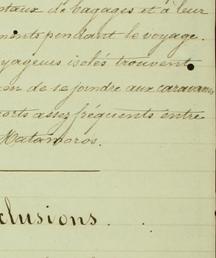 taux de bagages et à leur
ments pendant le voyage.
yageurs isolés trouvent
on de se joindre aux caravanes
orts assez fréquents entre
Matamoros.
clusions.